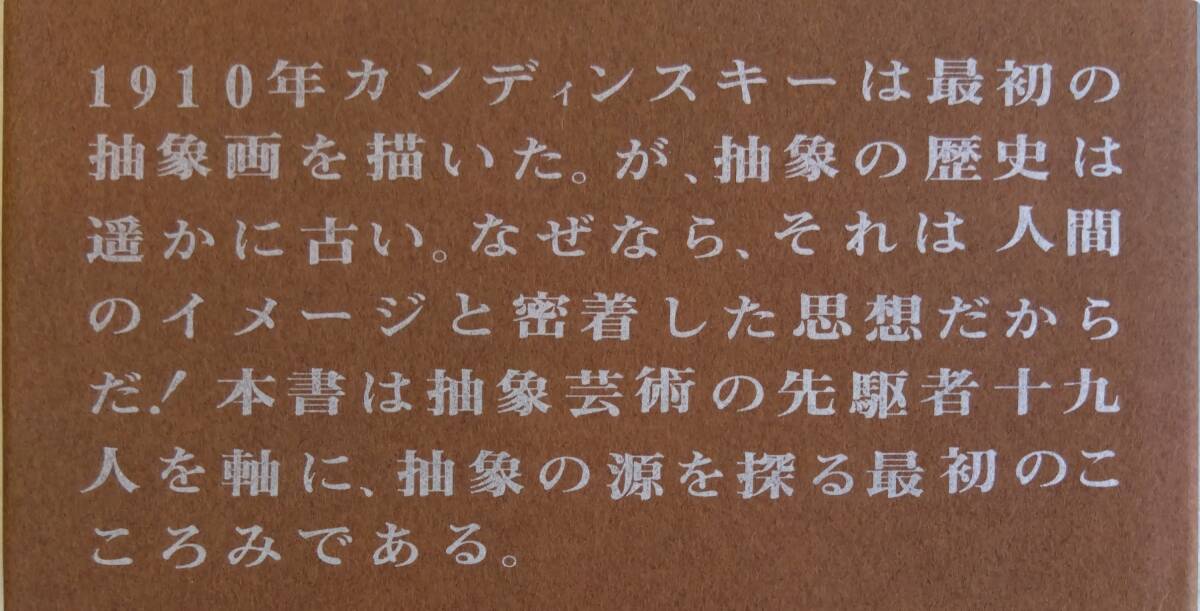 1910年カンディンスキーは最初の
抽象画を描いた。が、抽象の歴史は
遥かに古い。なぜなら、それは人間
のイメージと密着した思想だから
だ！本書は抽象芸術の先駆者十九
人を軸に、抽象の源を探る最初のこ
ころみである。